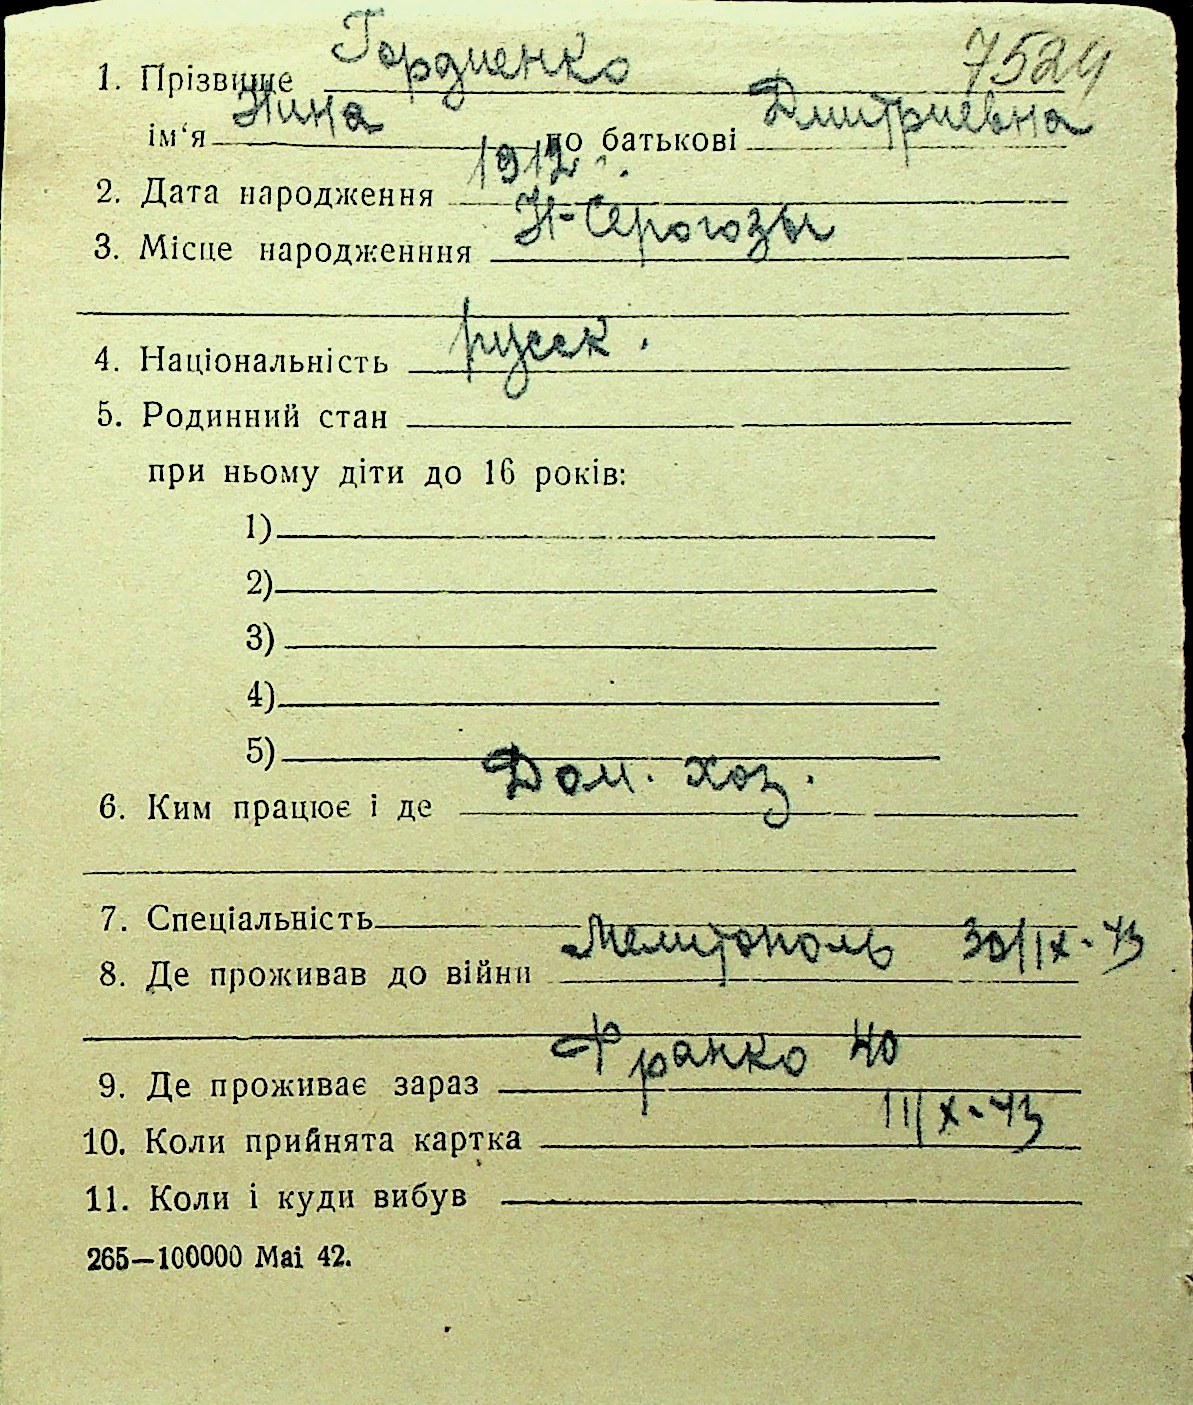 1. Прізвище Гордиенко 7524
ім‘я Нина по батькові Дмитриевна
2. Дата народження 1912 г.
3. Місце народженння Н-Серогозы
4. Національність русск.
5. Родинний стан
при ньому діти до 16 років:
1)
2)
3)
4)
5)
6. Ким працює і де Дом. хоз.
7. Спеціальність
8. Де проживав до війни Мелитополь 30/IX-43
9. Де проживає зараз Франко 40
10. Коли прийнята картка 11/X-43
11. Коли і куди вибув
265—100000 Mai 42.